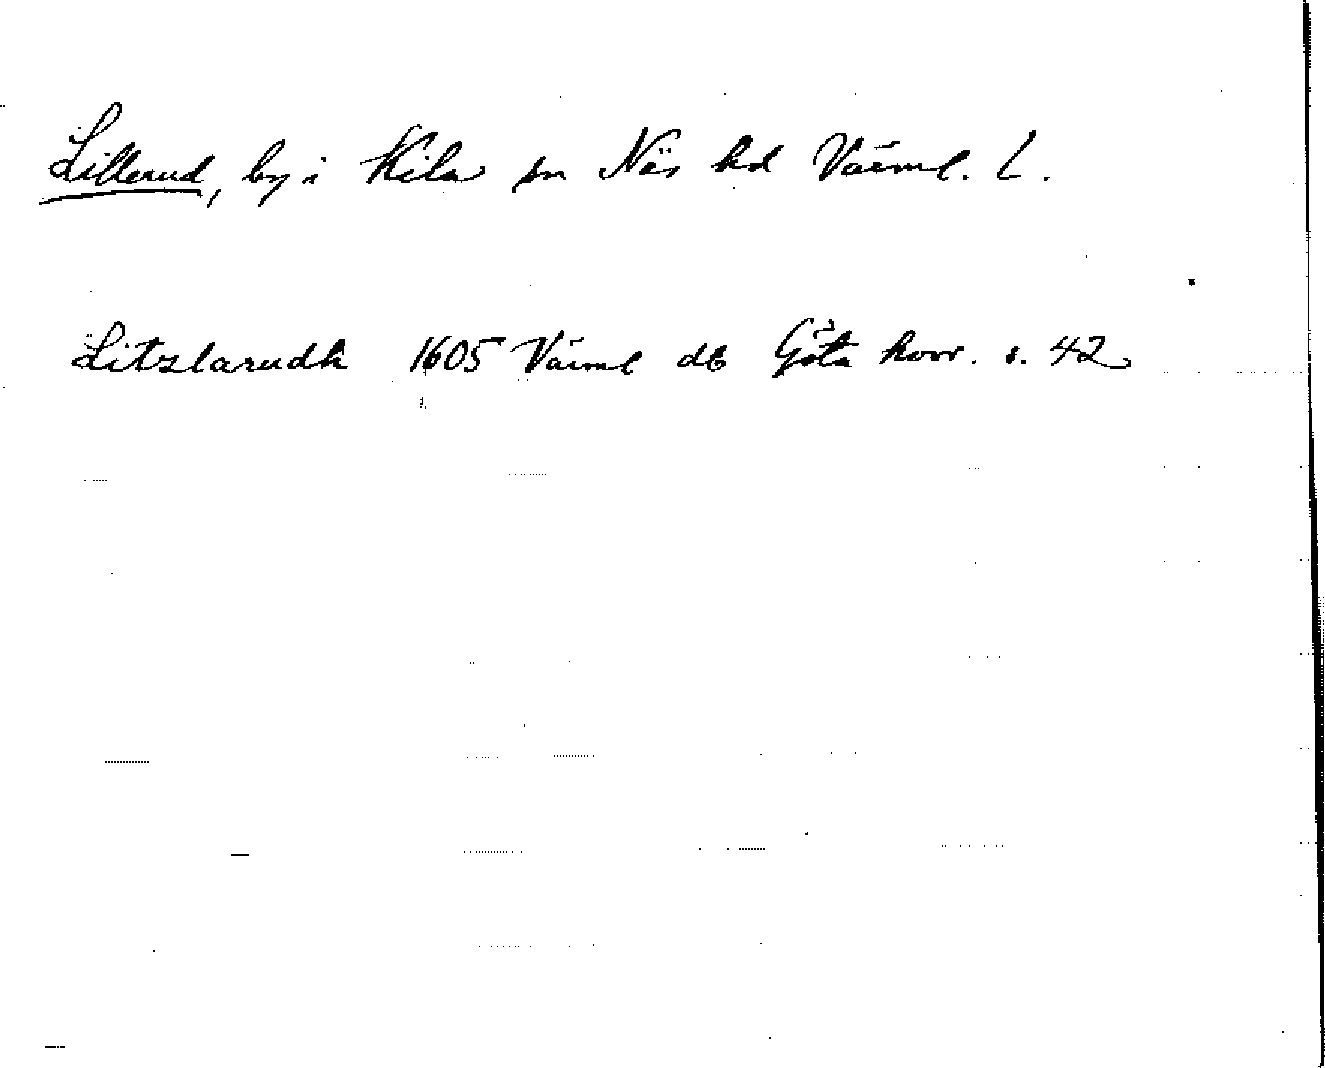 Lillerud, by i Kila sn Näs hd Värml. L.
Litzlarudh 1605 Värml db Göta hovr. s. 42